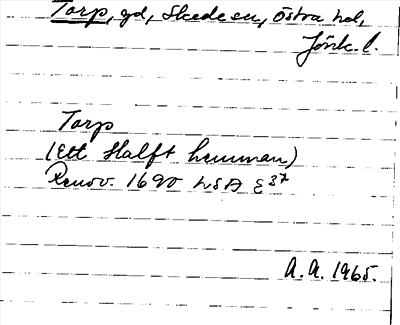 Torp, gd, Skede sn, Östra hd,
Jönk. l.
Torp
(Ett Halft hemman)
Renov. 1690 LSA E37
A. A. 1965.